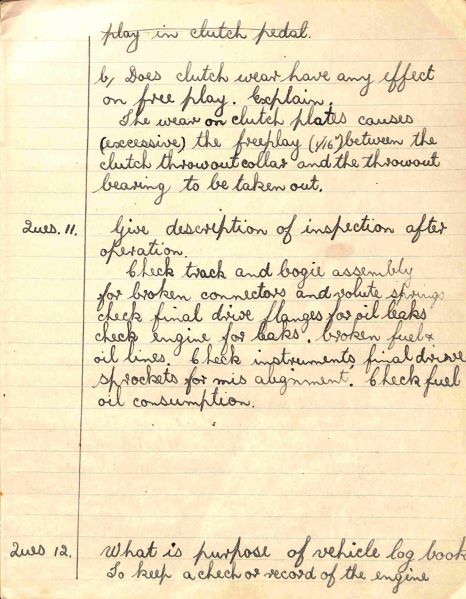 play in clutch pedal.
b, Does clutch wear have any effect
on free play. Explain.
The wear on clutch plates causes
(excessive) the freeplay (1/16") between the
clutch throwout collar and the throwout
bearing to be taken out.
Ques. 11. Give description of inspection after
operation.
Check track and bogie assembly
for broken connectors and volute springs
check final drive flanges for oil leaks
check engine for leaks. broken fuel &
oil lines. Check instruments, final drive
sprockets for mis alignment. Check fuel
oil consumption.
Ques 12. What is purpose of vehicle log book
To keep a check or record of the engine